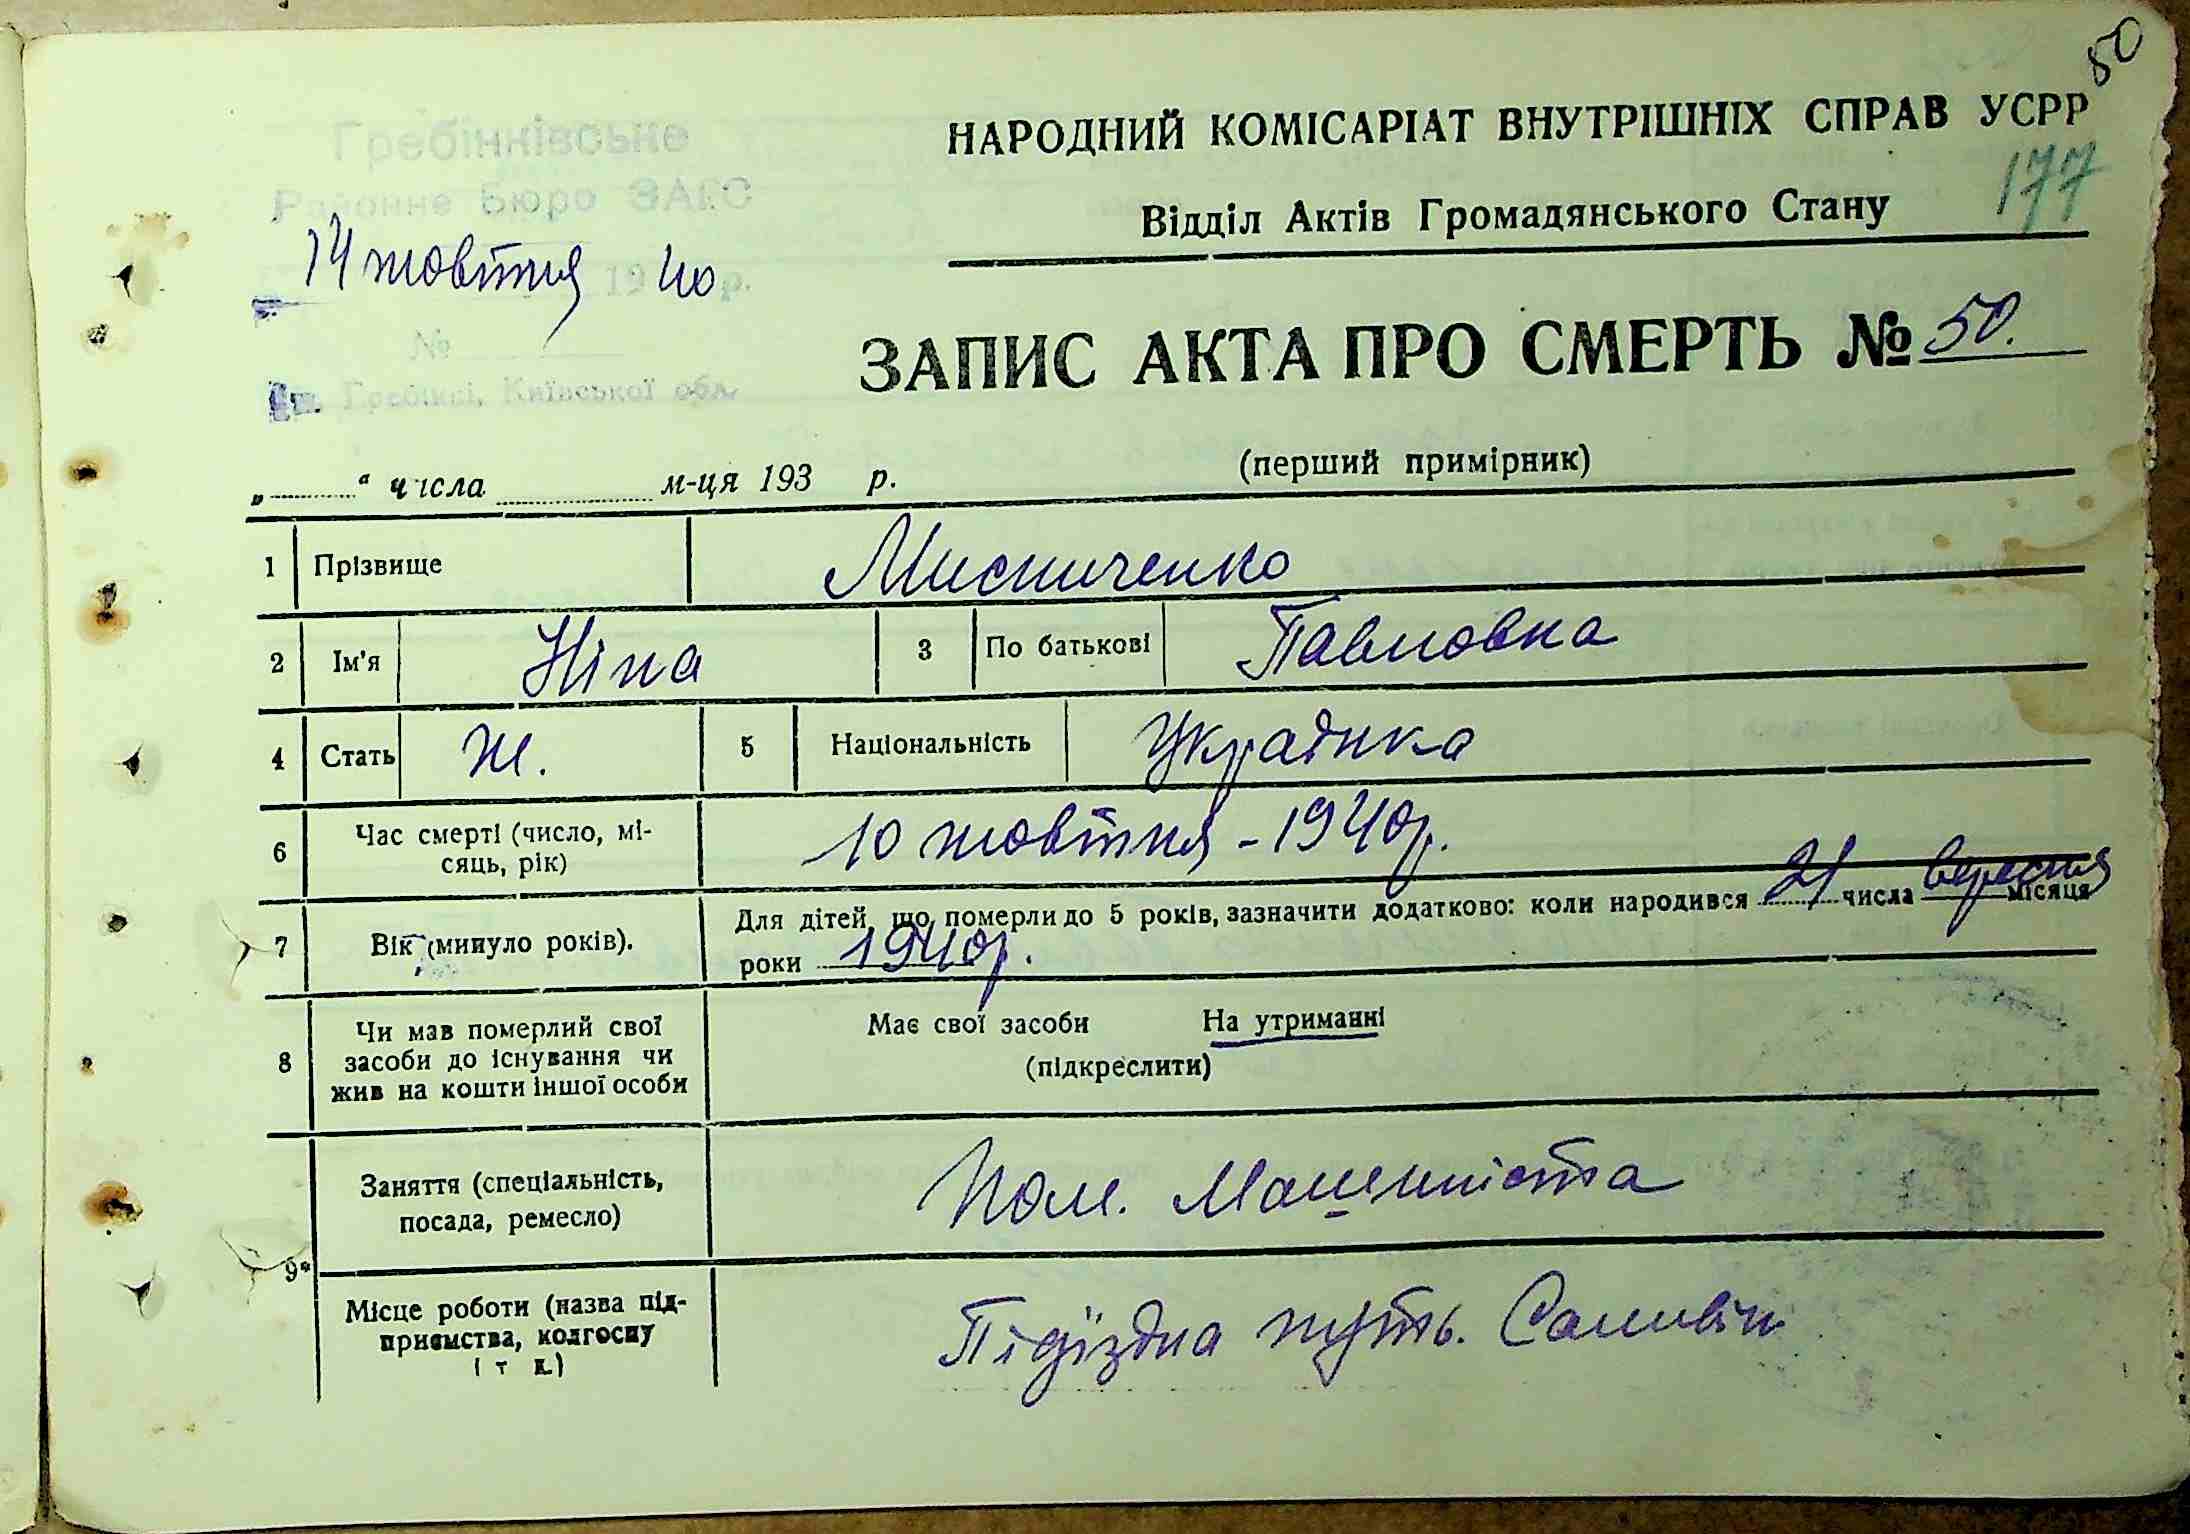 50
НАРОДНИЙ КОМІСАРІАТ ВНУТРІШНІХ СПРАВ УСРР
177
Відділ Актів Громадянського Стану
Гребінківське
Районне Бюро ЗАГС
14 жовтня 1940 р.
№
Гребінкі, Київської обл.
ЗАПИС АКТА ПРО СМЕРТЬ № 50.
(перший примірник)
„ " числа м-ця 193 р.
1 Прізвище Мисниченко
2 Ім'я Ніна 3 По батькові Павловна
4 Стать Ж. 5 Національність Українка
6 Час смерті (число, мі-
сяць, рік) 10 жовтня - 1940р.
7 Вік (минуло років). Для дітей, що померли до 5 років, зазначити додатково: коли народився 21 числа вересня місяця
роки 1940р.
8 Чи мав померлий свої
засоби до існування чи
жив на кошти іншої особи
Має свої засоби На утриманні
(підкреслити)
9* Заняття (спеціальність,
посада, ремесло) Пом. Машиніста
Місце роботи (назва під-
приємства, колгоспу
і т д.) Підїздна путь.